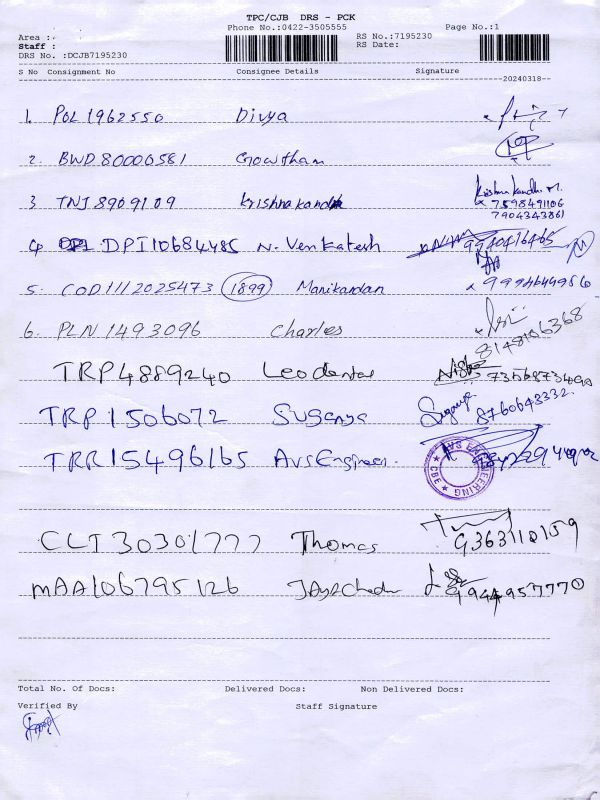 TPC/CJB DRS - PCK
Phone No.:0422-3505555 Page No.:1
Area :
RS No.:7195230
Staff :
RS Date:
DRS No. :DCJB7195230
S No Consignment No Consignee Details Signature
20240318
1. POL1962550 Divya
2. BWD80000581 Gowtham
3 TNJ8909109 Krishnakandh Krishna kandh. M.
x 7598491106
7904343861
4. DPI10684485 N. Venkatesh 9940416465
5. COD1112025473 1899 Manikandan x 9994649956
6. PLN1493096 Charles 8148106368
TRP4889240 Leo dental
TRP1506072 Suganya Suganya 8760643332.
TRR15496165 Avs Engineer.
AVS ENGINEERING CBE
CLT30301777 Thomas 9363110159
MAA106795126 JAyAChadn
Total No. Of Docs: Delivered Docs: Non Delivered Docs:
Verified By Staff Signature